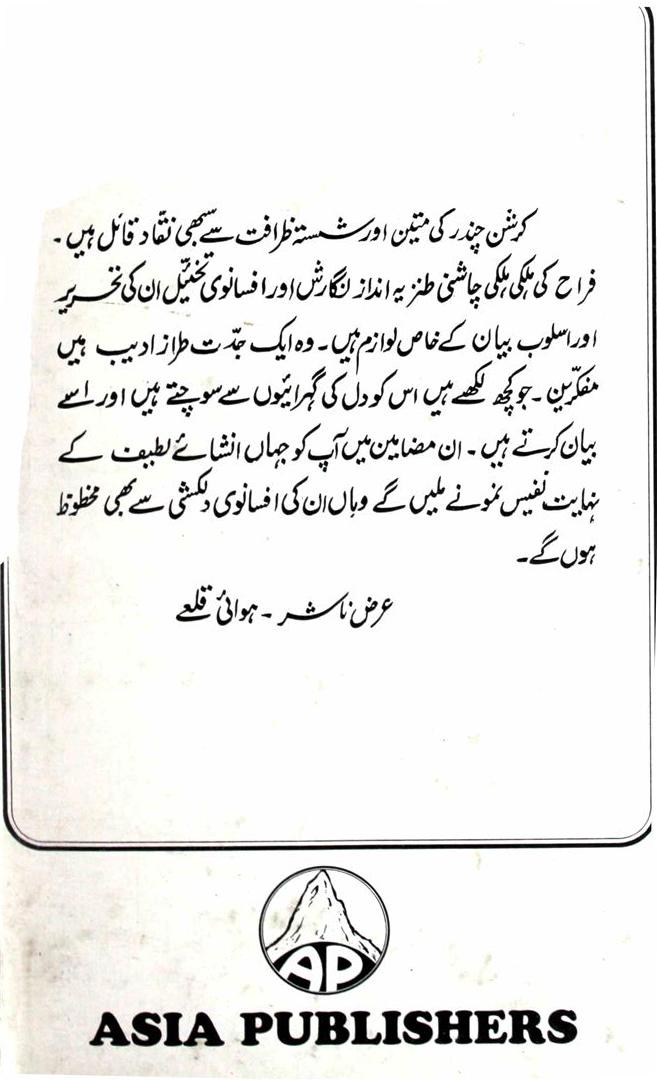 کرشن چندر کی متین اور شستہ ظرافت سے سبھی نقّاد قائل ہیں۔
فراح کی ہلکی ہلکی چاشنی طنزیہ انداز نگارش اور افسانوی تخیّل ان کی تحریر
اور اسلوب بیان کے خاص لوازم ہیں۔ وہ ایک جدّت طراز ادیب ہیں
مفکّر ہیں۔ جو کچھ لکھتے ہیں اس کو دل کی گہرائیوں سے سوچتے ہیں اور اسے
بیان کرتے ہیں۔ ان مضامین میں آپ کو جہاں انشائے لطیف کے
نہایت نفیس نمونے ملیں گے وہاں ان کی افسانوی دلکشی سے بھی محظوظ
ہوں گے۔
عرض ناشر ۔ ہوائی قلعے
AP
ASIA PUBLISHERS